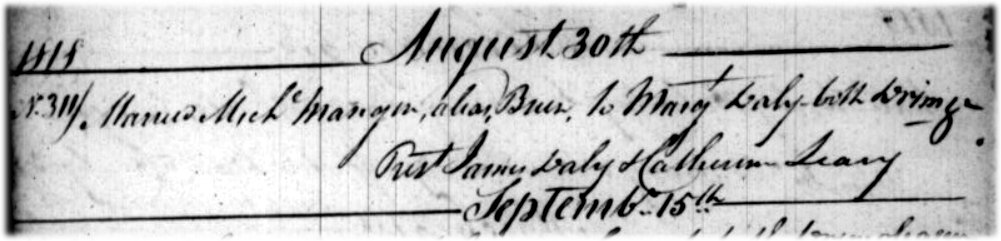 1818 August 30th
No. 311/ Married Michl. Mangin, alias, Brien, to Margt Daly both Drimg
Prest James Daly & Catherine Leary
Septembr. 15th